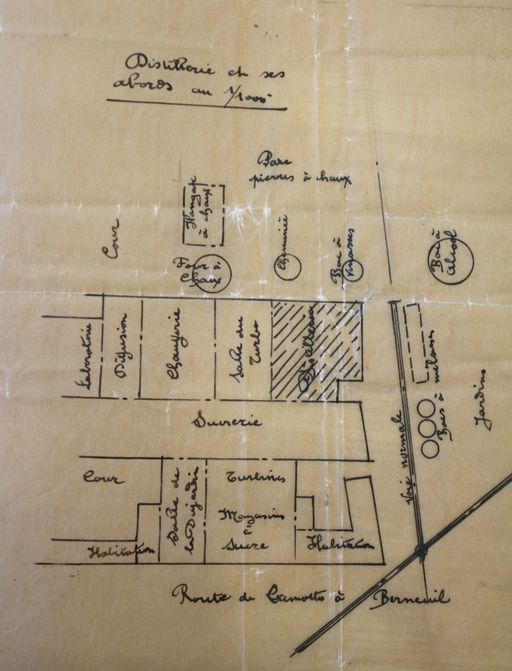 Distillerie et ses
abords au 1/1000
Parc
pierres à chaux
Hangar
à chaux
Cour
Four à
Chaux
Cheminée
Bac à
vinasses
Bac à
alcool
Laboratoire
Diffusion
Chaufferie
Salle du
Turbo
Distillerie
Bacs à mélasses
Jardins
Sucrerie
Voie normale
Cour
Salle de
la Dujardin
Turbines
Magasins
à
Sucre
Habitation
Habitation
Route de Camotte à Berneuil